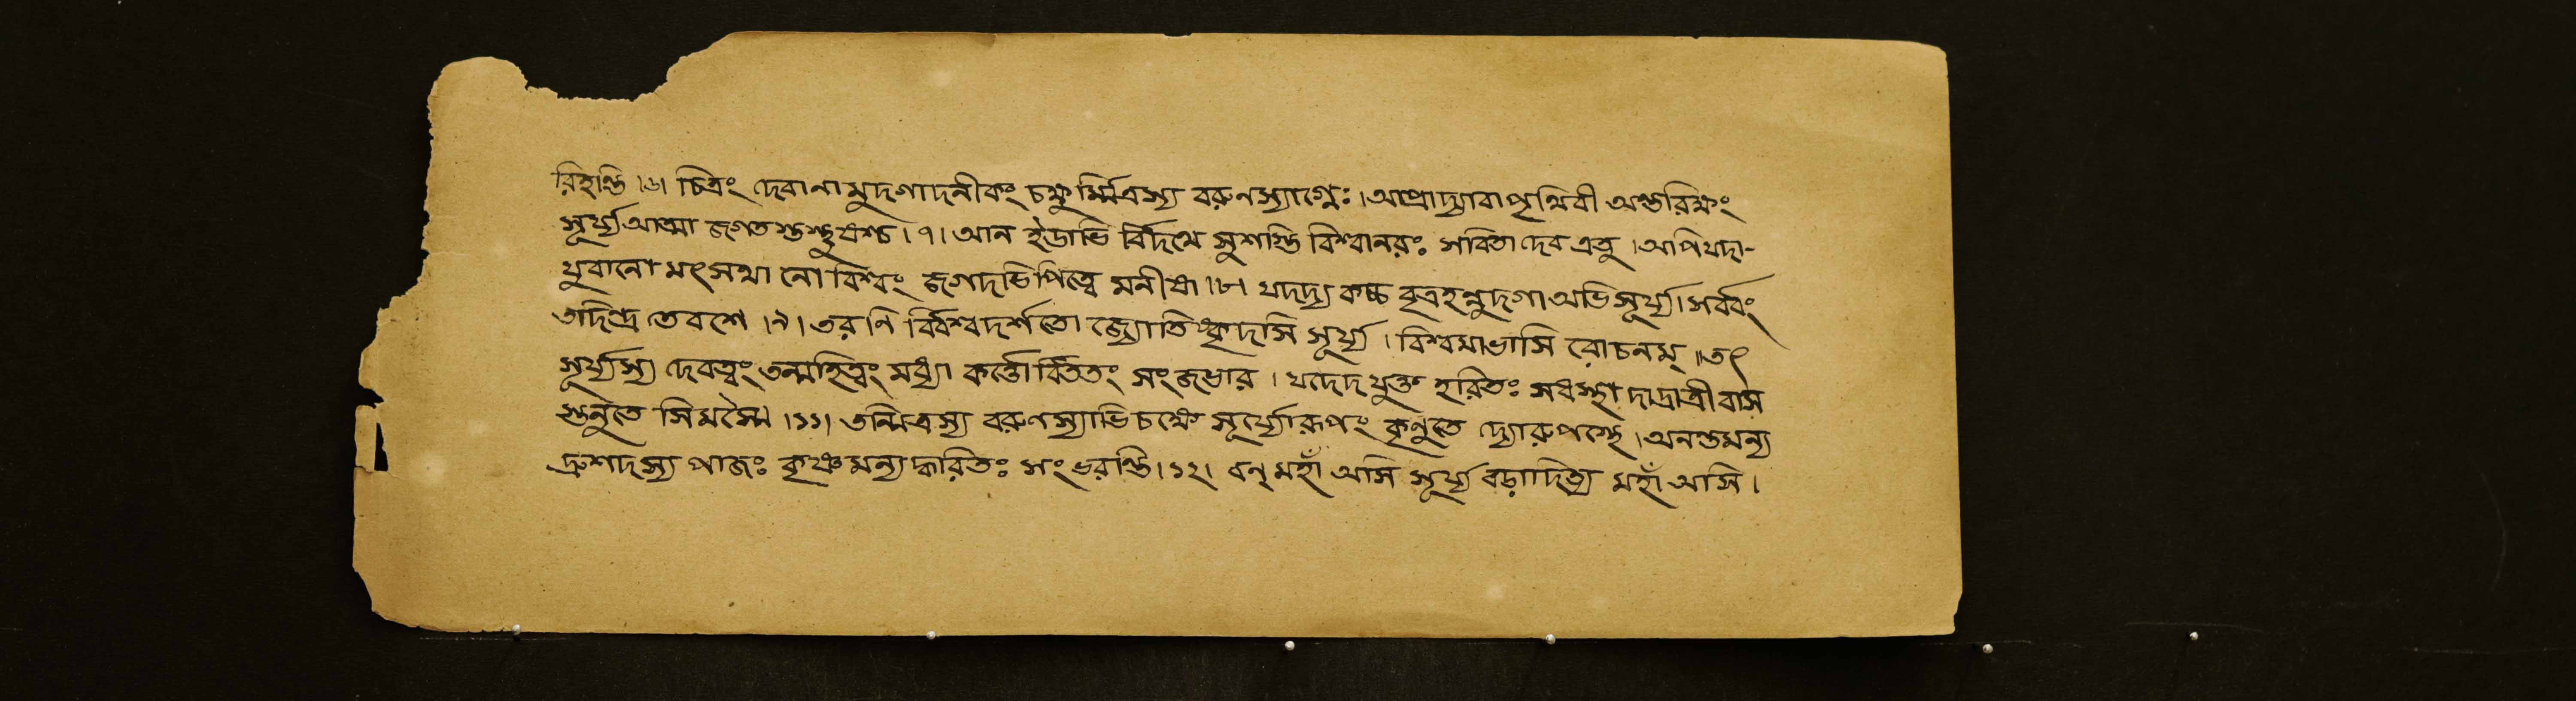 রিহন্তি ।৬। চিত্রং দেবানামুদগাদনীকং চক্ষুর্ম্মিত্রস্য বরুনস্যাগ্নেঃ । আপ্রাদ্যাবাপৃথিবী অন্তরিক্ষং
সূর্য্যআত্মা জগতস্তস্থুষশ্চ । ৭। আন ইডাভি র্বিদথে সুশস্তি বিশ্বানরঃ সবিতা দেব এতু । আপিযদা-
যুবানো মৎসথা নো বিশ্বং জগদভিপিত্বে মনীষা ।৮। যদদ্য কচ্চ বৃত্রহন্নুদগা অভিসূর্য্য । সর্ব্বং
তদিন্দ্র তেবশে ।৯। তরণি র্বিশ্বদর্শতো জ্যোতিষ্কৃদসি সূর্য্য । বিশ্বমাভাসি রোচনম্ ॥ তৎ
সূর্য্যস্য দেবত্বং তন্মহিত্বং মধ্যা কর্ত্তোর্বিততং সংজভার । যদেদযুক্ত হরিতঃ সধস্থাদাদ্রাত্রীবাস
স্তনুতে সিমস্মৈ ।১১। তন্মিত্রস্য বরুণস্যাভিচক্ষে সূর্য্যোরূপং কৃনুতে দ্যোরুপস্থে । অনন্তমন্য
দ্রুশদস্য পাজঃ কৃষ্ণমন্যদ্ধরিতঃ সংভরন্তি । ১২। বন্মহাঁ অসি সূর্য্য বড়াদিত্য মহাঁ অসি ।